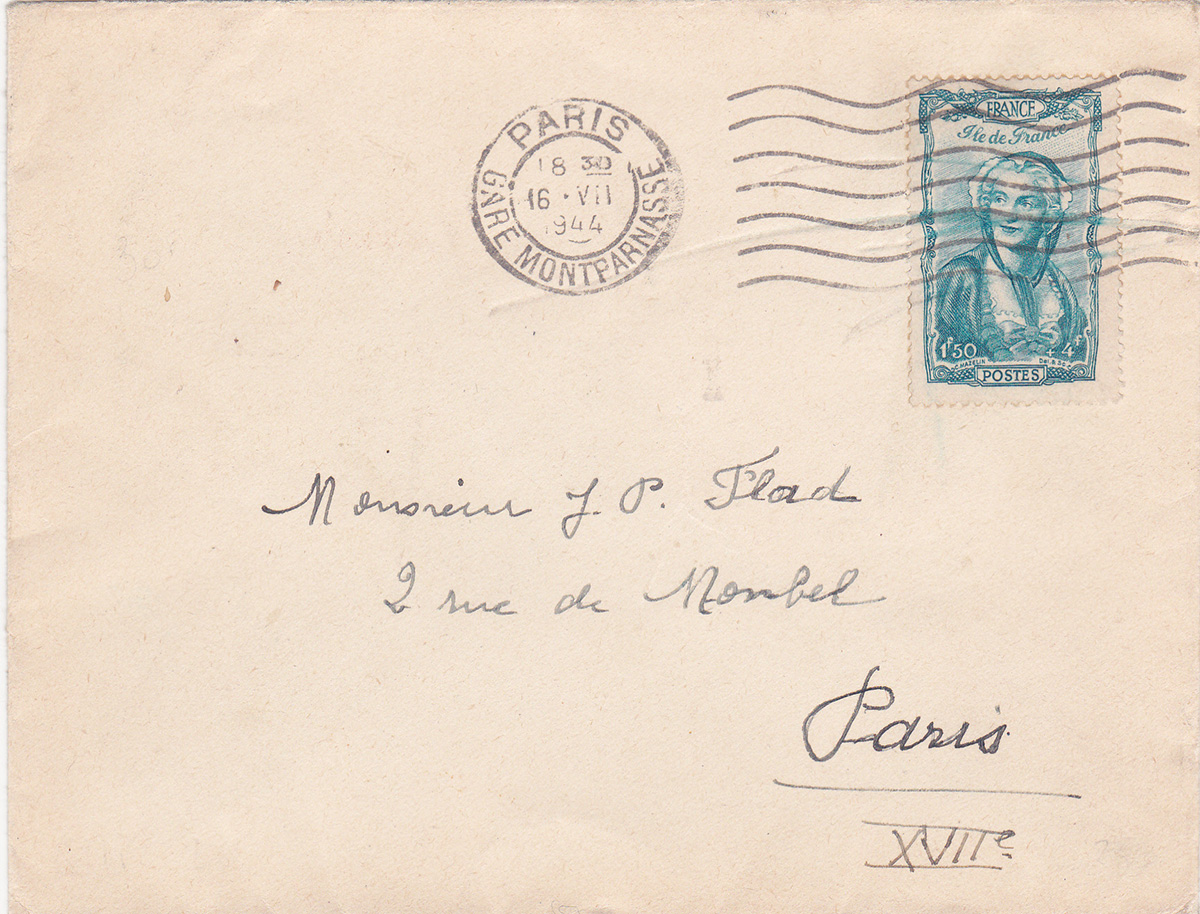 PARIS
18 30
16 · VII
1944
GARE MONTPARNASSE
FRANCE
Ile de France
1F50 + 4F
C. MAZELIN
POSTES
Monsieur J. P. Flad
2 rue de Monbel
Paris
XVIIe